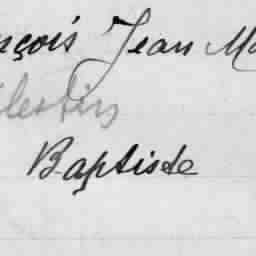 nçois Jean Ma
lestin
Baptiste